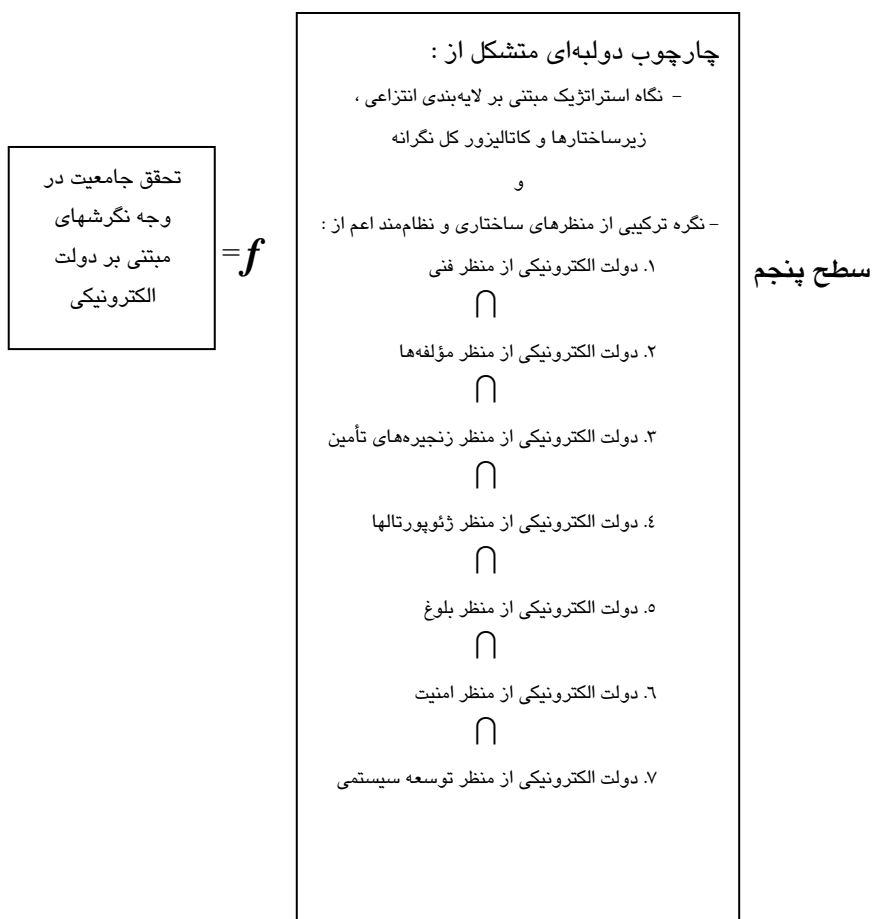 سطح پنجم
چارچوب دولبه‌ای متشکل از :
– نگاه استراتژیک مبتنی بر لایه‌بندی انتزاعی ،
زیرساختارها و کاتالیزور کل نگرانه
و
– نگره ترکیبی از منظرهای ساختاری و نظام‌مند اعم از :
۱. دولت الکترونیکی از منظر فنی
∩
۲. دولت الکترونیکی از منظر مؤلفه‌ها
∩
۳. دولت الکترونیکی از منظر زنجیره‌های تأمین
∩
٤. دولت الکترونیکی از منظر ژئوپورتالها
∩
٥. دولت الکترونیکی از منظر بلوغ
∩
٦. دولت الکترونیکی از منظر امنیت
∩
۷. دولت الکترونیکی از منظر توسعه سیستمی
=f
تحقق جامعیت در
وجه نگرشهای
مبتنی بر دولت
الکترونیکی